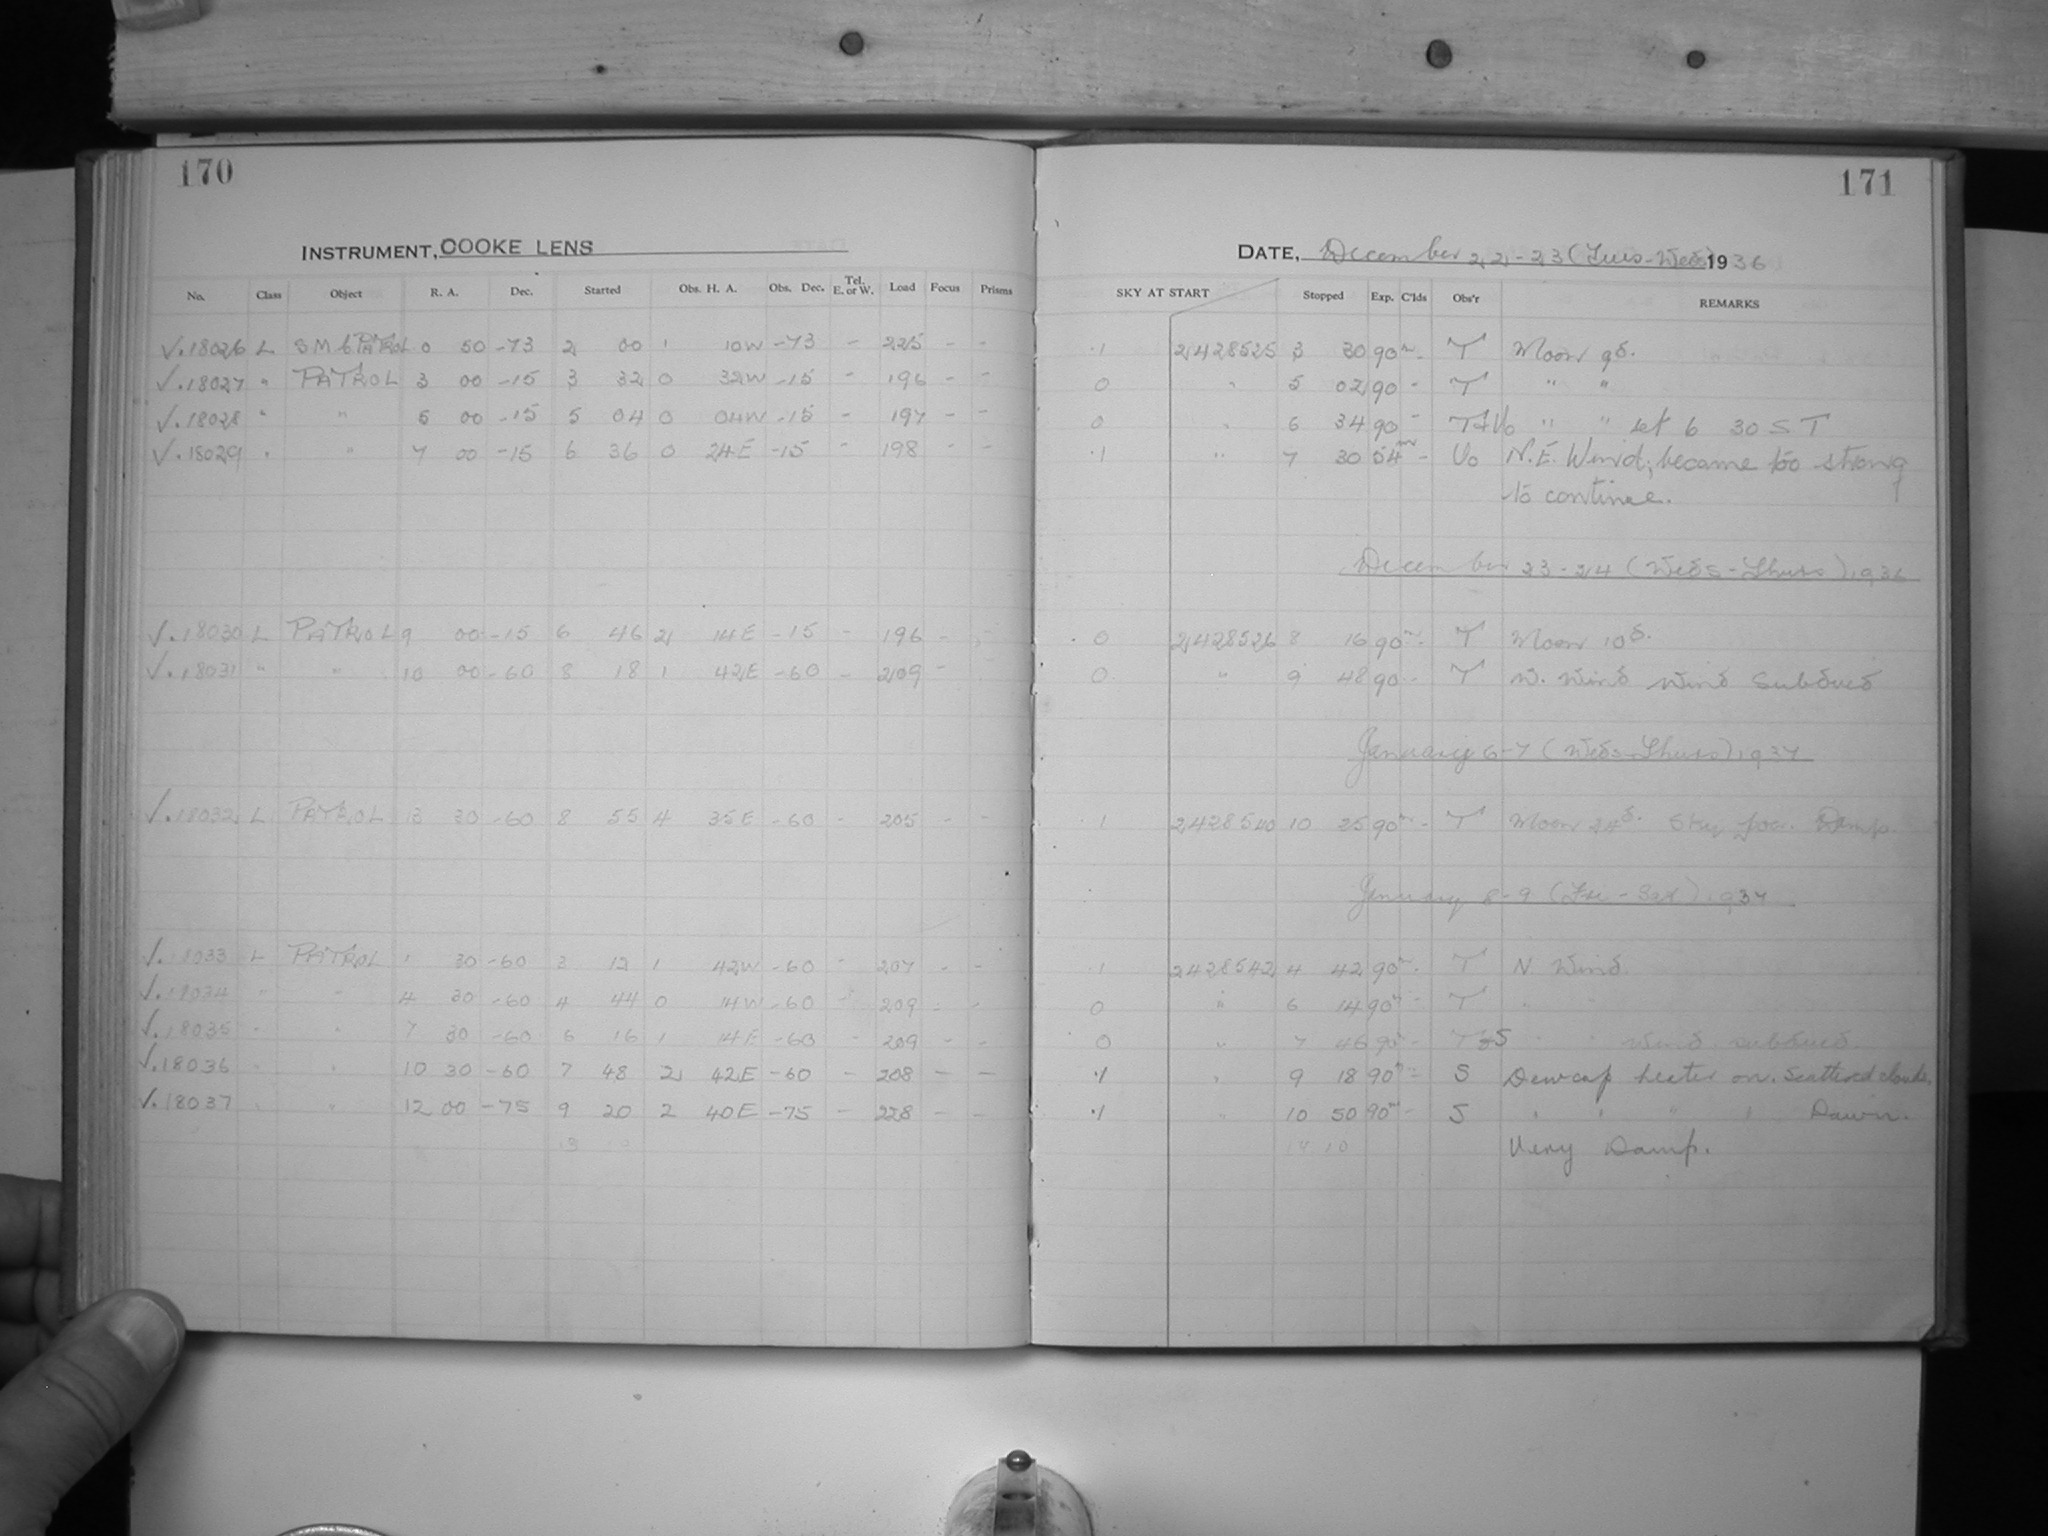 170
INSTRUMENT, COOKE LENS
No. Class Object R. A. Dec. Started Obs. H. A. Obs. Dec. Tel. E. or W. Load Focus Prisms
√.18026 L SMC PATROL 0 50 -73 2 00 1 10W -73 - 225 - -
√.18027 " PATROL 3 00 -15 3 32 0 32W -15 - 196 - -
√.18028 " " 5 00 -15 5 04 0 04W -15 - 197 - -
√.18029 " " 7 00 -15 6 36 0 24E -15 - 198 - -
√.18030 L PATROL 9 00 -15 6 46 2 14E -15 - 196 - -
√.18031 " " 10 00 -60 8 18 1 42E -60 - 209 -
√.18032 L PATROL 13 30 -60 8 55 4 35E -60 - 205 - -
√.18033 L PATROL 1 30 -60 3 12 1 42W -60 - 207 - -
√.18034 " " 4 30 -60 4 44 0 14W -60 - 209 - -
√.18035 " " 7 30 -60 6 16 1 14E -60 - 209 - -
√.18036 " " 10 30 -60 7 48 2 42E -60 - 208 - -
√.18037 " " 12 00 -75 9 20 2 40E -75 - 228 - -
171
DATE, December 22-23 (Tues-Weds) 1936
SKY AT START Stopped Exp. C'lds Obs'r REMARKS
.1 2428525 3 30 90m - T Moon 9d.
0 " 5 02 90 - T " "
0 " 6 34 90 - T+Uo " " set 6 30 ST
.1 " 7 30 54m - Uo N.E. Wind, became too strong
to continue.
December 23-24 (Weds-Thurs) 1936
0 2428526 8 16 90m - T Moon 10d.
0 " 9 48 90 - T W. Wind Wind subdued
January 6-7 (Weds-Thurs) 1937
.1 2428540 10 25 90m - T Moon 24d. Sky poor. Damp.
January 8-9 (Fri-Sat) 1937
.1 2428542 4 42 90m - T N. Wind.
0 " 6 14 90m - T "
0 " 7 46 90m - T&S " " Wind subdued.
.1 " 9 18 90m - S Dewcap heater on. Scattered clouds.
.1 " 10 50 90m - S " " " " Dawn.
Very Damp.